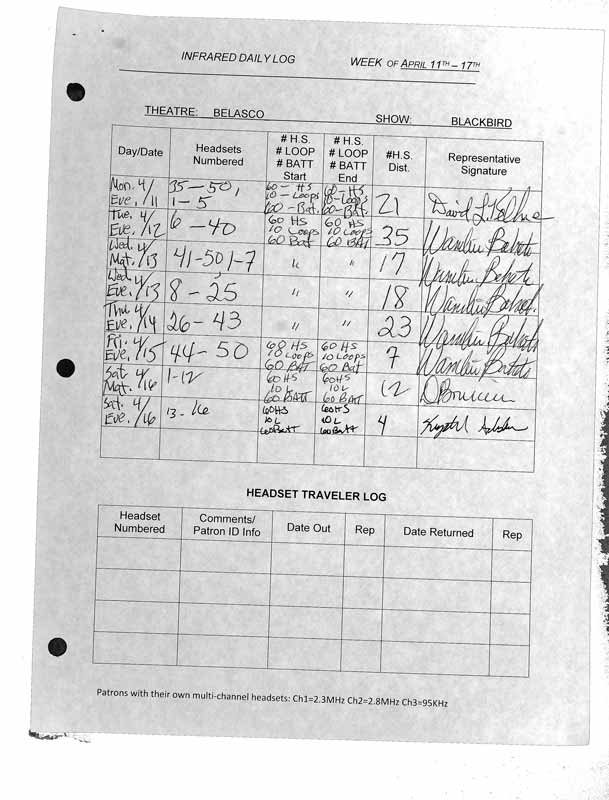 INFRARED DAILY LOG WEEK OF APRIL 11TH – 17TH
THEATRE: BELASCO SHOW: BLACKBIRD
Day/Date Headsets Numbered # H.S. # LOOP # BATT Start # H.S. # LOOP # BATT End #H.S. Dist. Representative Signature
Mon. 4/11 Eve. 35-50, 1-5 60-HS 10-Loops 60-Bat. 60-HS 10-Loops 60-Bat. 21 David L.
Tue. 4/12 Eve. 6-40 60 HS 10 Loops 60 Bat 60 HS 10 Loops 60 BAT 35
Wed. 4/13 Mat. 41-50, 1-7 " " 17
Wed. 4/13 Eve. 8-25 " " 18
Thu. 4/14 Eve. 26-43 " " 23
Fri. 4/15 Eve. 44-50 60 HS 10 Loops 60 BAT 60 HS 10 Loops 60 BAT 7
Sat 4/16 Mat. 1-12 60HS 10 L 60 BATT 60HS 10 L 60 BATT 12
Sat. 4/16 Eve. 13-16 60HS 10 L 60Batt 60HS 10 L 60Batt 4
HEADSET TRAVELER LOG
Headset Numbered Comments/ Patron ID Info Date Out Rep Date Returned Rep
Patrons with their own multi-channel headsets: Ch1=2.3MHz Ch2=2.8MHz Ch3=95KHz